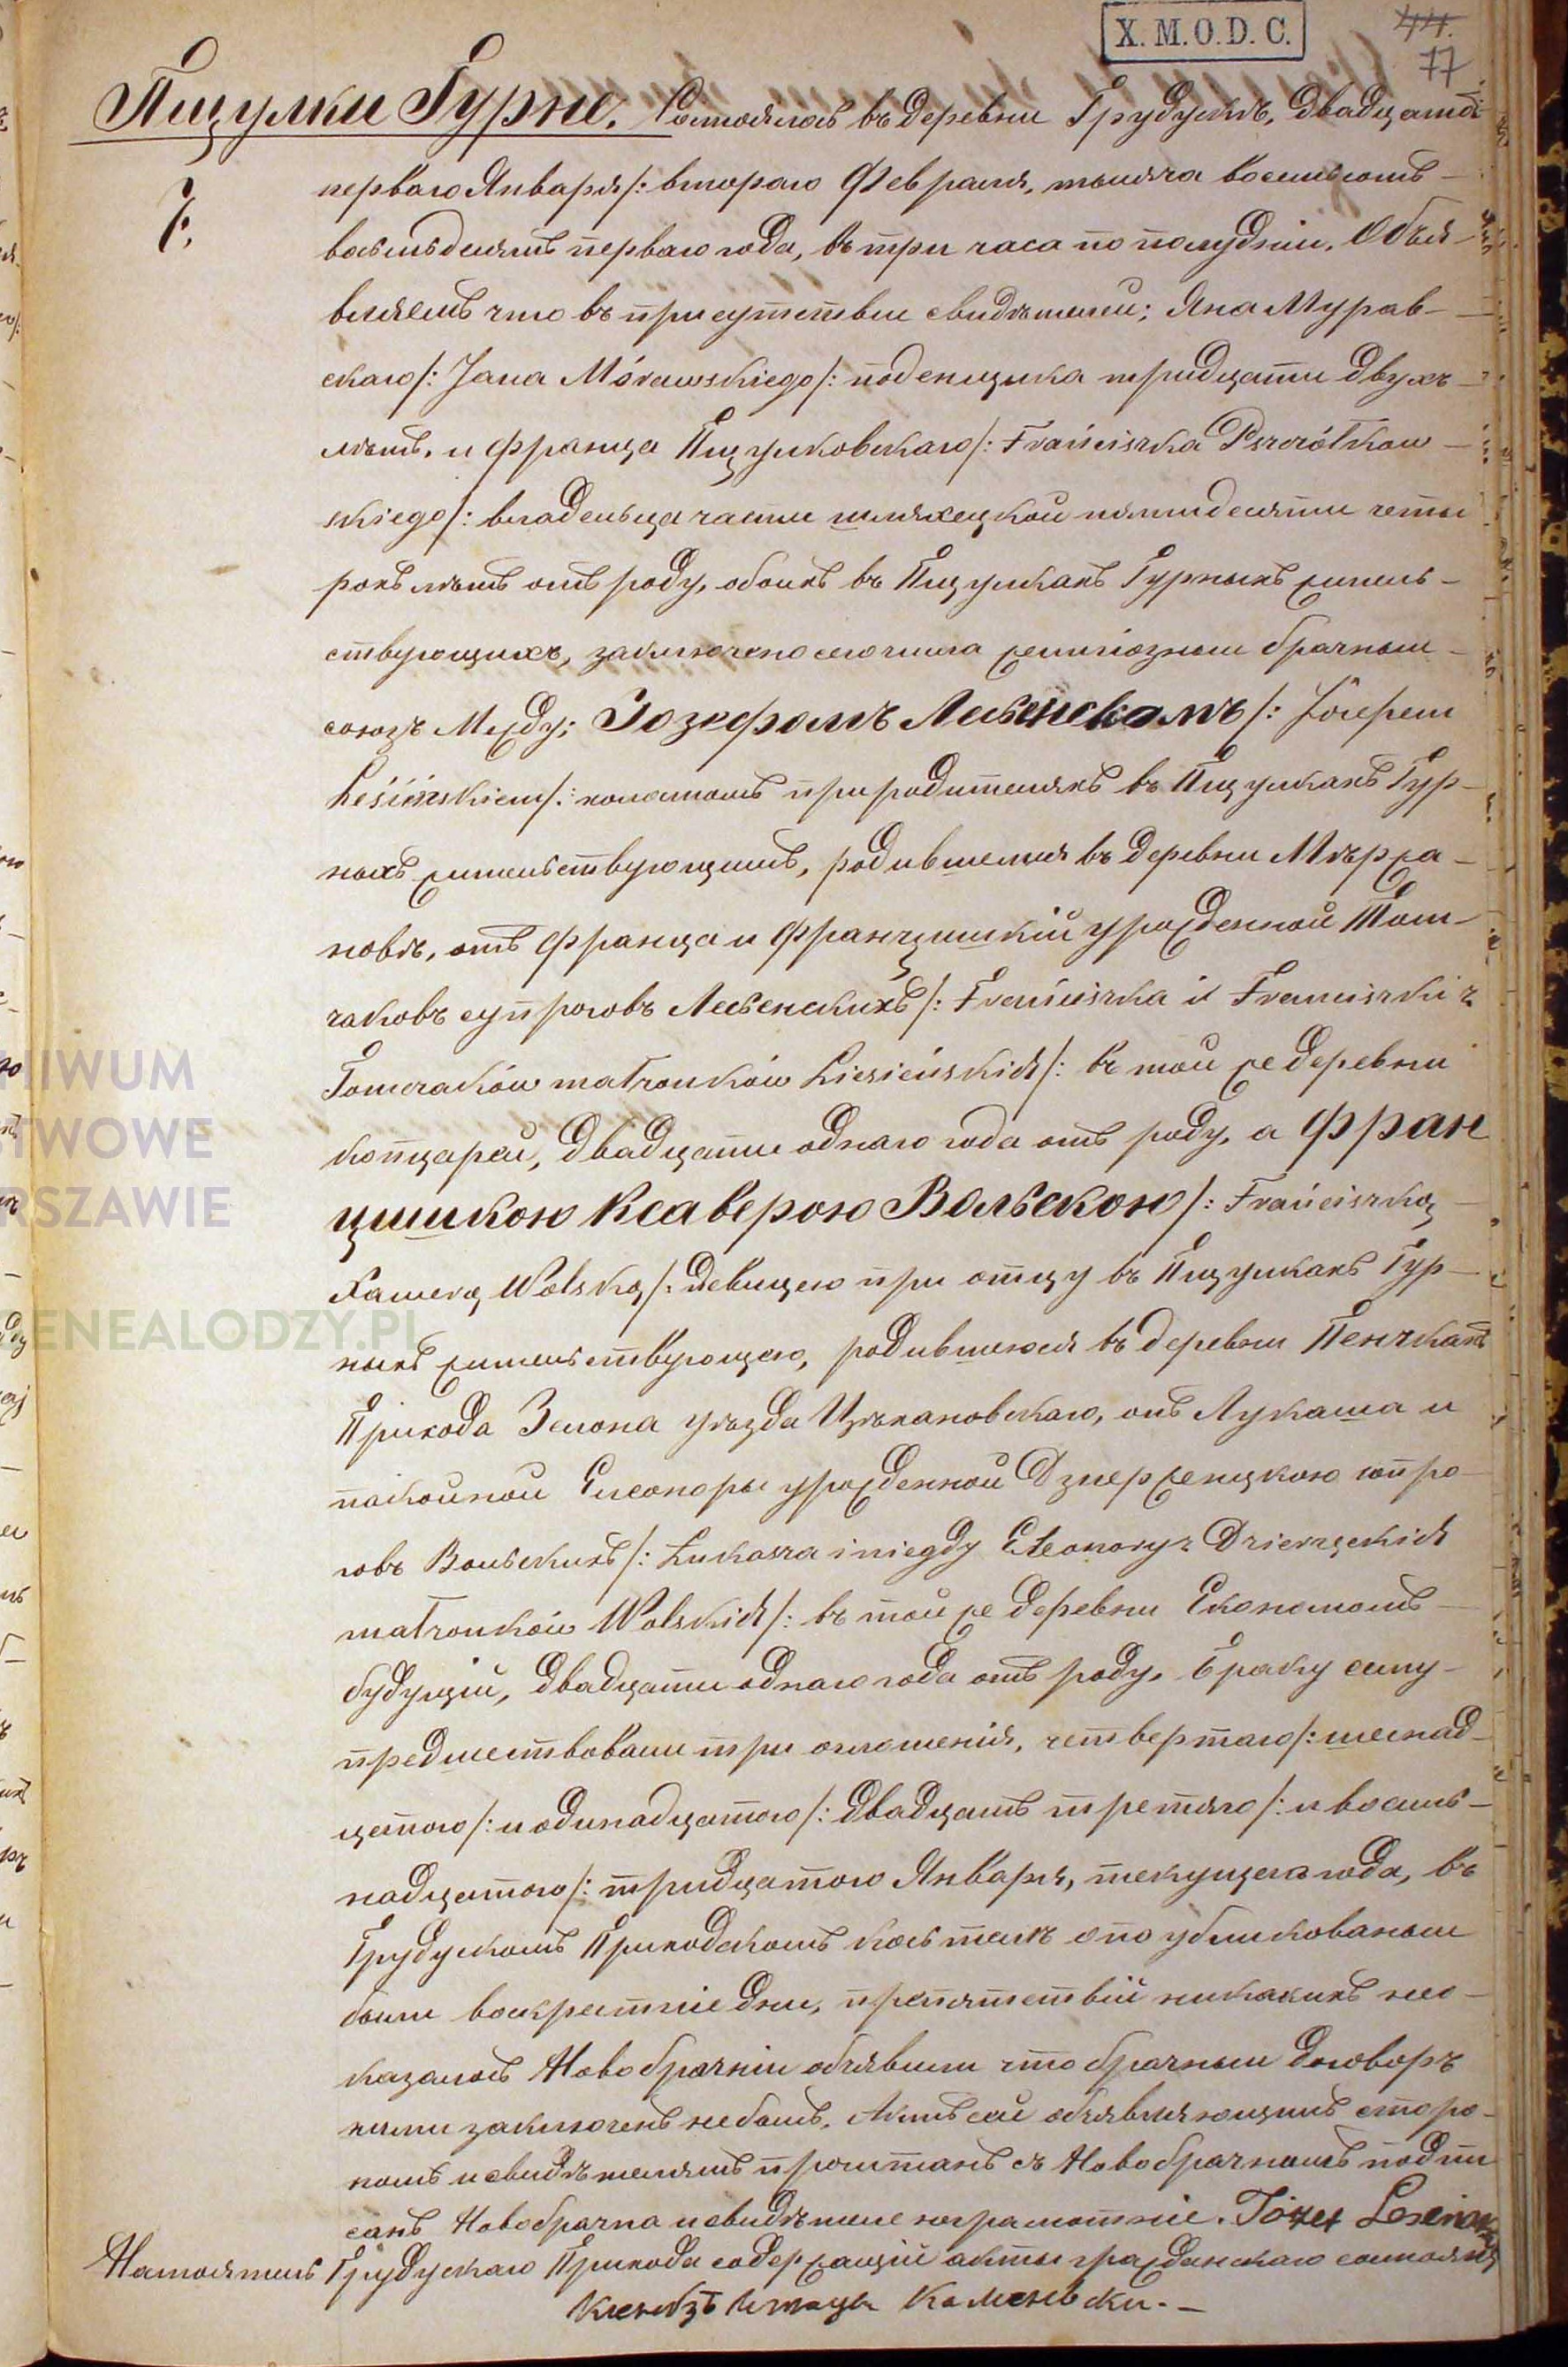 X. M. O. D. C.
44.
77
Пщулки Гурне. Состоялось въ деревни Грудускѣ, двадцать
7.
перваго Января /: втораго Февраля, тысяча восемьсотъ
восемьдесятъ перваго года, въ три часа по полудніи. Объя-
вляемъ что въ присутствіи свидѣтелей; Яна Мурав-
скаго /: Jana Mórawskiego /: поденщика тридцати двухъ
лѣтъ, и Франца Пщулковскаго /: Franciszka Pszczółkow-
skiego /: владельца части шляхецкой пятидесяти четы
рохъ лѣтъ отъ роду, обоихъ въ Пщулкахъ Гурныхъ житель-
ствующихъ, заключено сего числа религіозный брачный
союзъ Между; Іозефомъ Лесенскомъ /: Józefem
Lesińskiem /: холостомъ при родителяхъ въ Пщулкахъ Гур-
ныхъ жительствующимъ, родившемся въ деревни Мѣржа-
новѣ, отъ Франца и Францишкій урожденной Том-
чаковъ супроговъ Лесенскихъ /: Franciszka i Franciszki z
Tomczaków małżonków Liesieńskich /: въ той же деревни
копцарей, двадцати одного года отъ роду, а Фран
цишкою Ксаверою Вольскою /: Franciszką
Xawerą Wolską /: девицею при отцу въ Пщулкахъ Гур-
ныхъ жительствующею, родившеюся въ деревни Пенчкахъ
Прихода Зелона уѣзда Цѣхановскаго, отъ Лукаша и
покойной Елеоноры урожденной Дзержендкою супро-
говъ Вольскихъ /: Łukasza i niegdy Eleonory z Dzierżęckich
małżonków Wolskich /: въ той же деревни Економомъ
будущій, двадцати одного года отъ роду. Браку сему
предшествовали три оглошенія, четвертаго /: шеснад-
цатого /: и одинадцатого /: двадцать третяго /: и восемь-
надцатого /: тридцатого Января, текущего года, въ
Грудускомъ Приходскомъ костелѣ опубликованыи
были воскрестніе дни, препятствій никакихъ нео-
казалось Новобрачніи объявили что брачный договоръ
ними заключенъ небылъ. Актъ сей объявляющимъ сторо-
номъ и свидѣтелямъ прочитанъ съ Новобрачномъ подпи
санъ Новобрачна и свидѣтеле неграмотніе. Józef Lesiński
Настоятель Грудускаго Прихода содержащій акты гражданскаго состоянія
Ксендзъ Игнацы Каменьски. -
HIWUM
STWOWE
RSZAWIE
GENEALODZY.PL